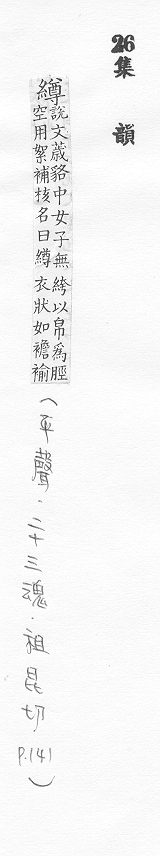 26 集韻
繜
說文薉貉中女子無絝以帛爲脛
空用絮補核名曰繜衣狀如襜褕
(平聲.二十三魂.祖昆切 P.141)